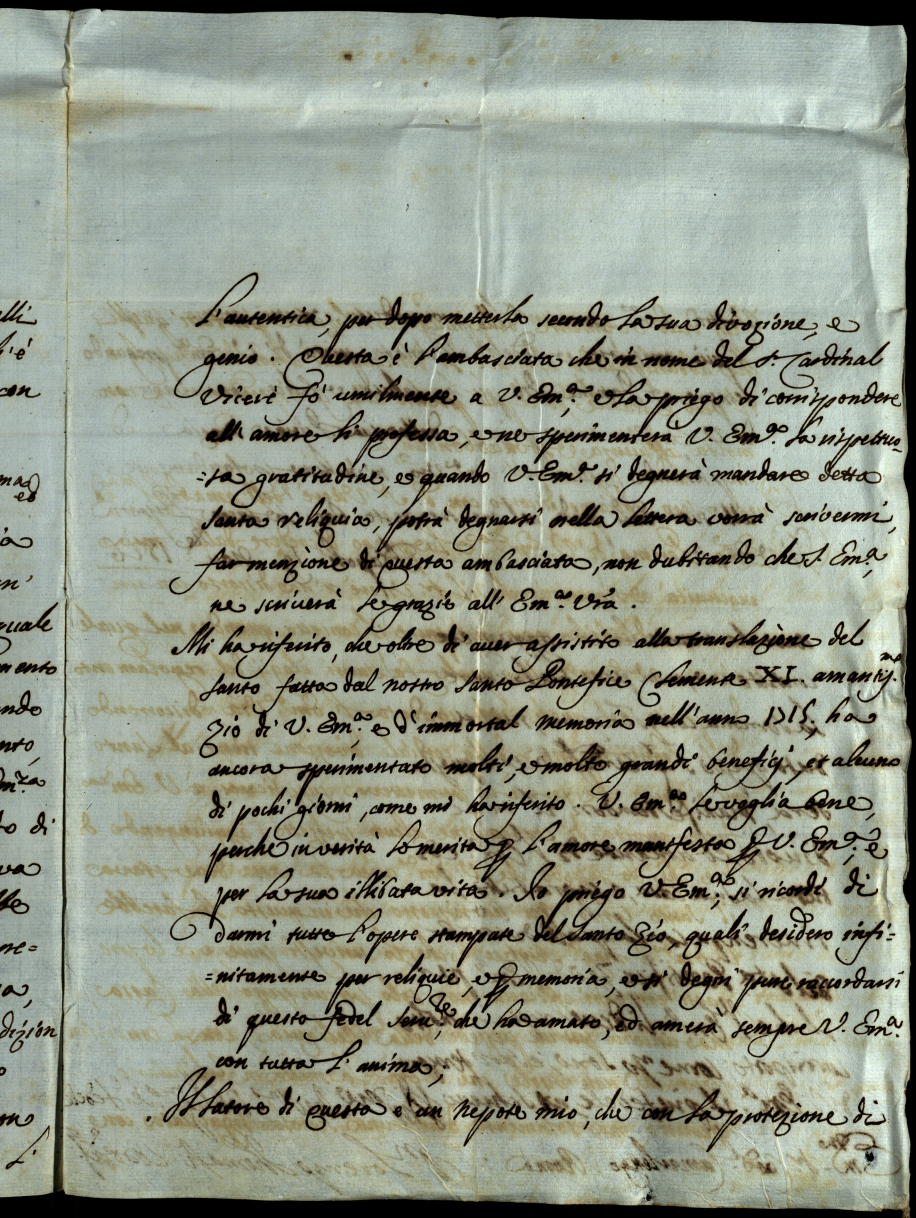 L'autentica, per dopo metterla secondo la sua divozione, e
genio. Questa è l'ambasciata che in nome del S.r Cardinal
Vicerè fò umilmente a V. Em.za, e la priego di corrispondere
all'amore li professa, e ne sperimenterà V. Em.za la rispettuo-
=sa gratitudine, e quando V. Em.za si degnerà mandare detta
santa reliquia, potrà degnarsi nella lettera vorrà scrivermi,
far menzione di questa ambasciata, non dubitando che S. Em.za,
ne scriverà le grazie all'Em.za Vrã.
Mi ha riferito, che oltre di aver assistito alla translazione del
santo fatta dal nostro santo Pontefice Clemente XI. amantiss.mo
zio di V. Em.za, e d'immortal memoria nell'anno 1715, ha
ancora sperimentato molti, e molto grandi beneficj, et alcuno
di pochi giorni, come mi ha riferito. V. Em.za le voglia bene,
perche in verità lo merita p l'amore manifesta p V. Em.za, è
per la sua illibata vita. Io priego V. Em.za, si ricordi di
darmi tutte l'opere stampate del santo zio, quali desidero infi-
=nitamente per reliquie, e p memoria, e si degni pure raccordarsi
di questo fedel serv.re, che ha amato, ed amerà sempre V. Em.za
con tutta l'anima;
Il latore di questa è un nepote mio, che con la protezione di
elli
l'è
con
ia
un'
quale
mento
ando
nto,
to di
va
ne=
a,
dizion
L'